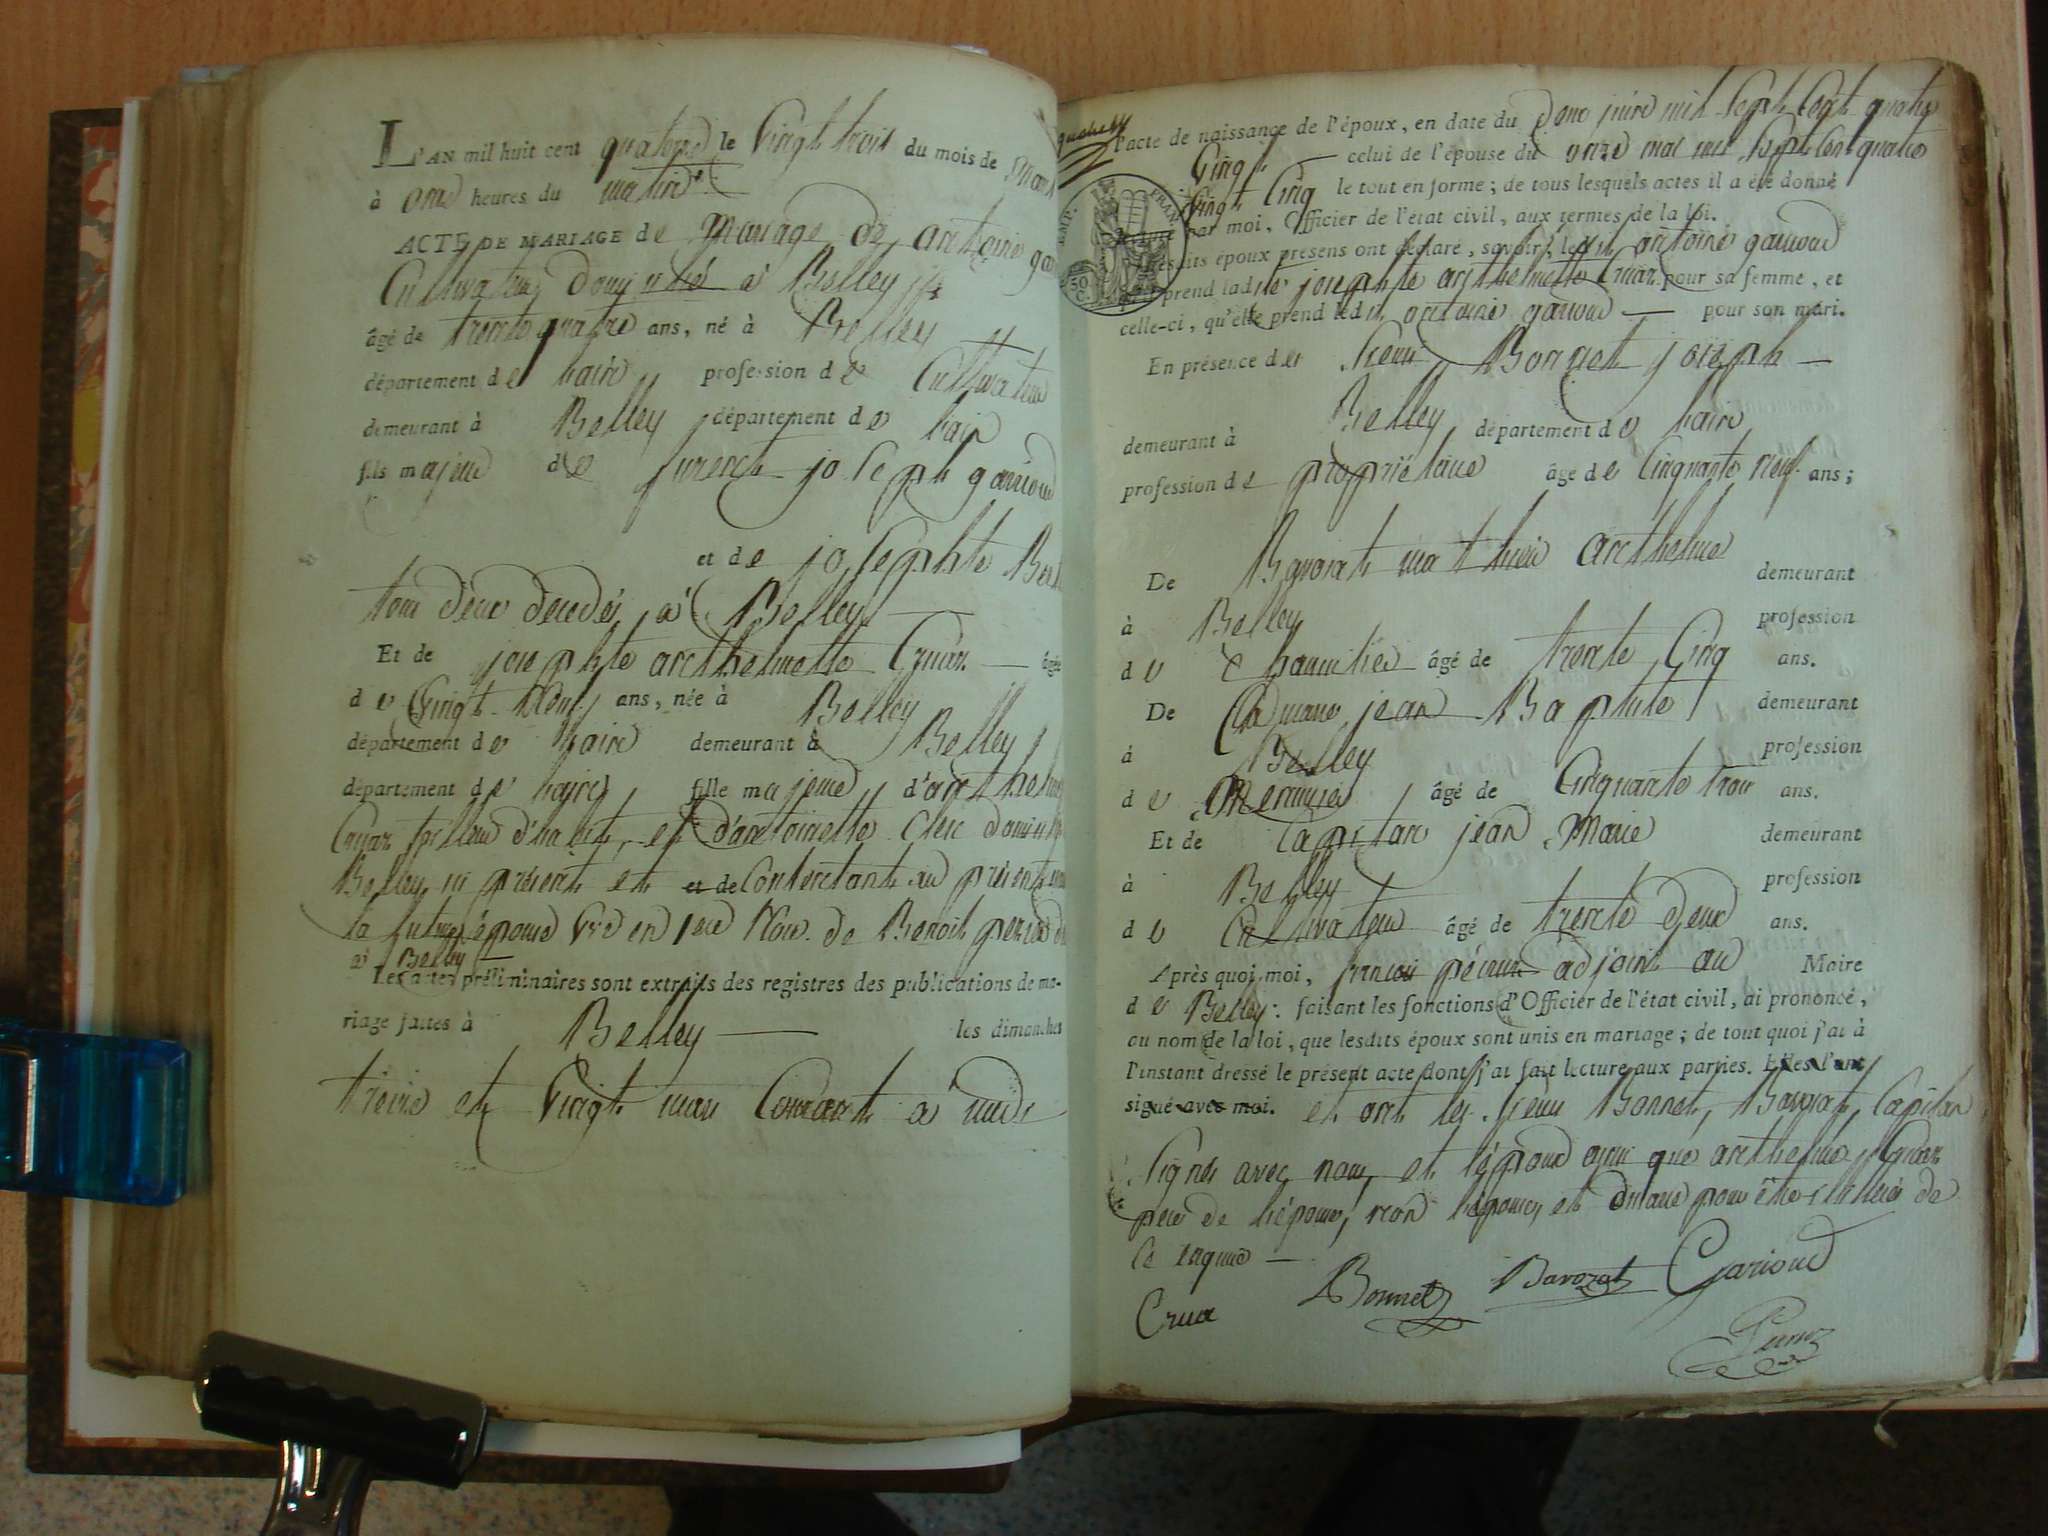 L'AN mil huit cent quatorze le Vingt trois du mois de mars
à onze heures du matin
ACTE DE MARIAGE de mariage de antoine
Cultivateur à Belley
âgé de trente quatre ans, né à Belley
département de l'ain profession de Cultivateur
demeurant à Belley département de l'ain
fils majeur de joseph garioud
et de josephte
tous deux décédés à Belley
Et de josephte anthelmette Cruaz âgée
de Vingt neuf ans, née à Belley
département de l'ain demeurant à Belley
département de l'ain fille majeure d'anthelme
Cruaz et d'antoinette Clerc
Belley ici présents et et de Consentants au présent
la future épouse Vve en 1ere Noce de Benoit
à Belley
Les actes préliminaires sont extraits des registres des publications de ma-
riage faites à Belley les dimanches
treize et Vingt mars Courant à midi
l'acte de naissance de l'époux, en date du mil sept Cent quatre
Vingt celui de l'épouse du onze mai mil sept Cent quatre
Vingt Cinq le tout en forme; de tous lesquels actes il a été donné
par moi, Officier de l'état civil, aux termes de la loi.
EMP. FRAN.
50 C.
Lesdits époux présens ont déclaré, savoir, ledit antoine garioud
prend ladite josephte anthelmette Cruaz pour sa femme, et
celle-ci, qu'elle prend ledit antoine garioud pour son mari.
En présence des sieurs Bonnet joseph
demeurant à Belley département de l'ain
profession de propriétaire âgé de Cinquante neuf ans;
De Bavozat mathieu anthelme demeurant
à Belley profession
de âgé de trente Cinq ans.
De jean Baptiste demeurant
à Belley profession
de Menuisier âgé de Cinquante trois ans.
Et de Capitan jean Marie demeurant
à Belley profession
de Cultivateur âgé de trente deux ans.
Après quoi, moi, adjoint au Maire
de Belley: faisant les fonctions d'Officier de l'état civil, ai prononcé,
au nom de la loi, que lesdits époux sont unis en mariage; de tout quoi j'ai à
l'instant dressé le présent acte dont j'ai fait lecture aux parties. Elles l'ont
signé avec moi. et ont les sieurs Bonnet, Bavozat, Capitan
Signés avec nous, et l'époux ainsi que anthelme Cruaz
père de l'épouse, non l'épouse, et pour être de
ce enquis
Crua Bonnet Bavozat Garioud